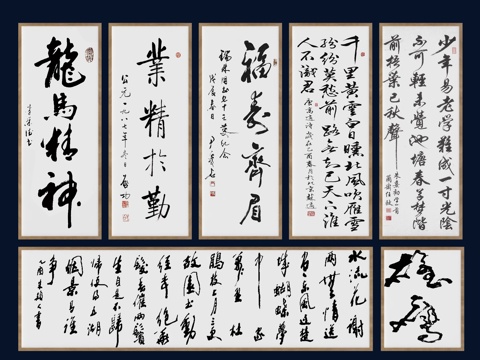 龍馬精神
業精於勤
公元一九八七年冬日 啟功
福壽齊眉
千里黃雲白日曛北風吹雁雪
紛紛莫愁前路無知己天下誰
人不識君
少年易老學難成一寸光陰
不可輕未覺池塘春草夢階
前梧葉已秋聲
水流花謝
兩無情送
盡東風過楚
城蝴蝶夢
中家
萬里杜
鵑枝上月三更
故園書動
經年絕華
髮催兩鬢
生自是不歸
歸便得五湖
煙景有誰
爭
雄鷹